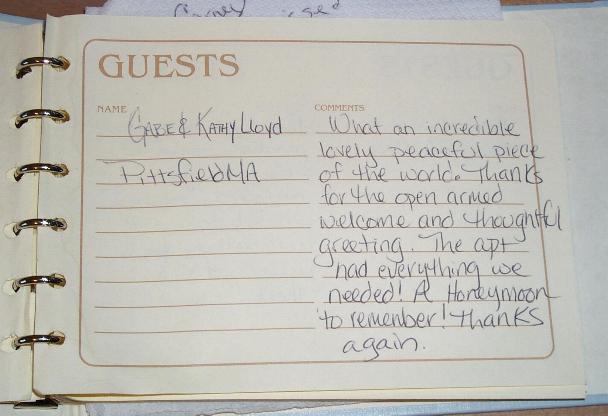 GUESTS
NAME
COMMENTS
GABE & KATHY Lloyd
Pittsfield MA
What an incredible
lovely peaceful piece
of the world. Thanks
for the open armed
welcome and thoughtful
greeting. The apt
had everything we
needed! A Honeymoon
to remember! Thanks
again.